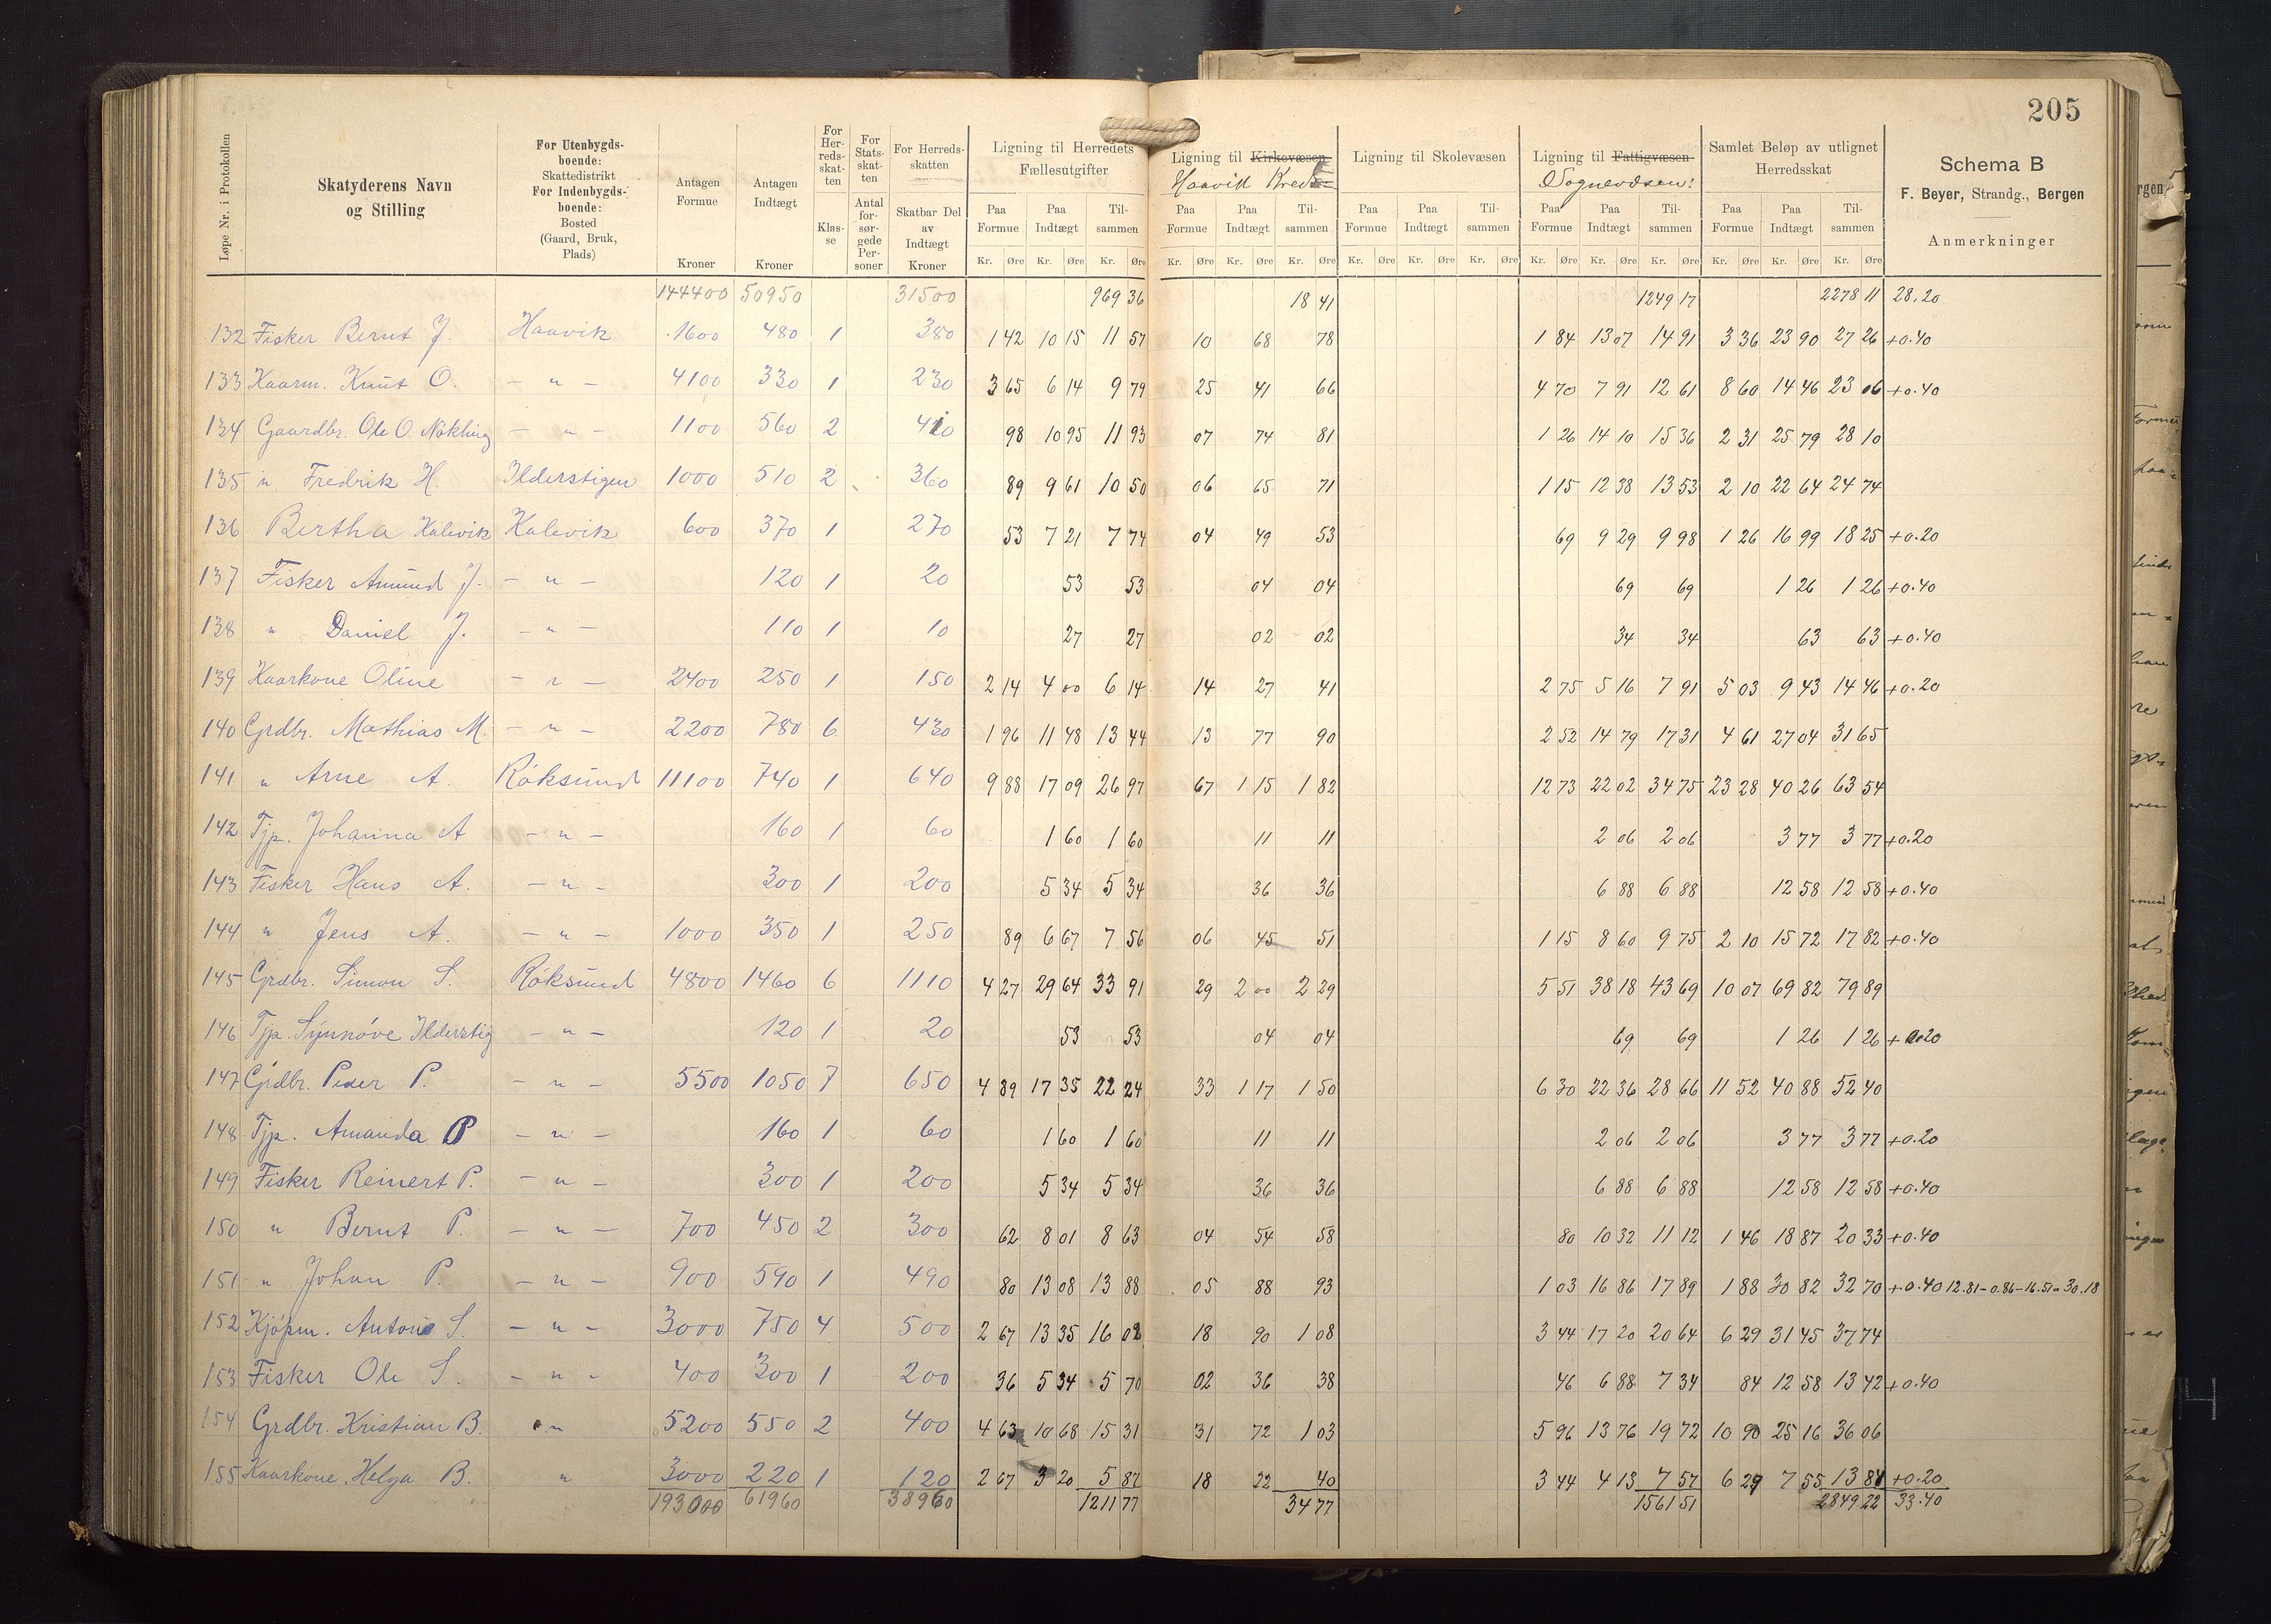 205
Løpe Nr. i Protokollen
Skatyderens Navn og Stilling
For Utenbygds-boende: Skattedistrikt For Indenbygds-boende: Bosted (Gaard, Bruk, Plads)
Antagen Formue Kroner
Antagen Indtægt Kroner
For Her-reds-skat-ten Klas-se
For Stats-skat-ten Antal for-sør-gede Per-soner
For Herreds-skatten Skatbar Del av Indtægt Kroner
Ligning til Herredets Fællesutgifter
Ligning til Kirkevæsen
Haavik Kreds
Ligning til Skolevæsen
Ligning til Fattigvæsen
Sognevæsen:
Samlet Beløp av utlignet Herredsskat
Schema B
F. Beyer, Strandg., Bergen
Anmerkninger
Paa Formue Paa Indtægt Til-sammen Paa Formue Paa Indtægt Til-sammen Paa Formue Paa Indtægt Til-sammen Paa Formue Paa Indtægt Til-sammen Paa Formue Paa Indtægt Til-sammen
Kr. Øre Kr. Øre Kr. Øre Kr. Øre Kr. Øre Kr. Øre Kr. Øre Kr. Øre Kr. Øre Kr. Øre Kr. Øre Kr. Øre Kr. Øre Kr. Øre Kr. Øre
144400 50950 31500 969 36 18 41 1249 17 2278 11 28.20
132 Fisker Bernt J. Haavik 1600 480 1 380 1 42 10 15 11 57 10 68 78 1 84 13 07 14 91 3 36 23 90 27 26 +0.40
133 Kaarm. Knut O. - " - 4100 330 1 230 3 65 6 14 9 79 25 41 66 4 70 7 91 12 61 8 60 14 46 23 06 +0.40
134 Gaardbr. Ole O. Nökling - " - 1100 560 2 410 98 10 95 11 93 07 74 81 1 26 14 10 15 36 2 31 25 79 28 10
135 " Fredrik H. Ilderstigen 1000 510 2 360 89 9 61 10 50 06 65 71 1 15 12 38 13 53 2 10 22 64 24 74
136 Bertha Kalevik Kalevik 600 370 1 270 53 7 21 7 74 04 49 53 69 9 29 9 98 1 26 16 99 18 25 +0.20
137 Fisker Amund J. - " - 120 1 20 53 53 04 04 69 69 1 26 1 26 +0.40
138 " Daniel J. - " - 110 1 10 27 27 02 02 34 34 63 63 +0.40
139 Kaarkone Oline - " - 2400 250 1 150 2 14 4 00 6 14 14 27 41 2 75 5 16 7 91 5 03 9 43 14 46 +0.20
140 Grdbr. Mathias M. - " - 2200 780 6 430 1 96 11 48 13 44 13 77 90 2 52 14 79 17 31 4 61 27 04 31 65
141 " Arne A. Röksund 11100 740 1 640 9 88 17 09 26 97 67 1 15 1 82 12 73 22 02 34 75 23 28 40 26 63 54
142 Tjp. Johanna A - " - 160 1 60 1 60 1 60 11 11 2 06 2 06 3 77 3 77 +0.20
143 Fisker Hans A. - " - 300 1 200 5 34 5 34 36 36 6 88 6 88 12 58 12 58 +0.40
144 " Jens A. - " - 1000 350 1 250 89 6 67 7 56 06 45 51 1 15 8 60 9 75 2 10 15 72 17 82 +0.40
145 Grdbr. Simon S. Röksund 4800 1460 6 1110 4 27 29 64 33 91 29 2 00 2 29 5 51 38 18 43 69 10 07 69 82 79 89
146 Tjp. Synnöve Ilderstig - " - 120 1 20 53 53 04 04 69 69 1 26 1 26 +0.20
147 Grdbr. Peder P. - " - 5500 1050 7 650 4 89 17 35 22 24 33 1 17 1 50 6 30 22 36 28 66 11 52 40 88 52 40
148 Tjp. Amanda P - " - 160 1 60 1 60 1 60 11 11 2 06 2 06 3 77 3 77 +0.20
149 Fisker Reinert P. - " - 300 1 200 5 34 5 34 36 36 6 88 6 88 12 58 12 58 +0.40
150 " Bernt P. - " - 700 450 2 300 62 8 01 8 63 04 54 58 80 10 32 11 12 1 46 18 87 20 33 +0.40
151 " Johan P. - " - 900 590 1 490 80 13 08 13 88 05 88 93 1 03 16 86 17 89 1 88 30 82 32 70 +0.40 12.81-0.86-16.51=30.18
152 Kjöpm. Anton S. - " - 3000 750 4 500 2 67 13 35 16 02 18 90 1 08 3 44 17 20 20 64 6 29 31 45 37 74
153 Fisker Ole S. - " - 400 300 1 200 36 5 34 5 70 02 36 38 46 6 88 7 34 84 12 58 13 42 +0.40
154 Grdbr. Kristian B. " 5200 550 2 400 4 63 10 68 15 31 31 72 1 03 5 96 13 76 19 72 10 90 25 16 36 06
155 Kaarkone Helga B. " 3000 220 1 120 2 67 3 20 5 87 18 22 40 3 44 4 13 7 57 6 29 7 55 13 84 +0.20
193000 61960 38960 1211 77 34 77 1561 51 2849 22 33.40